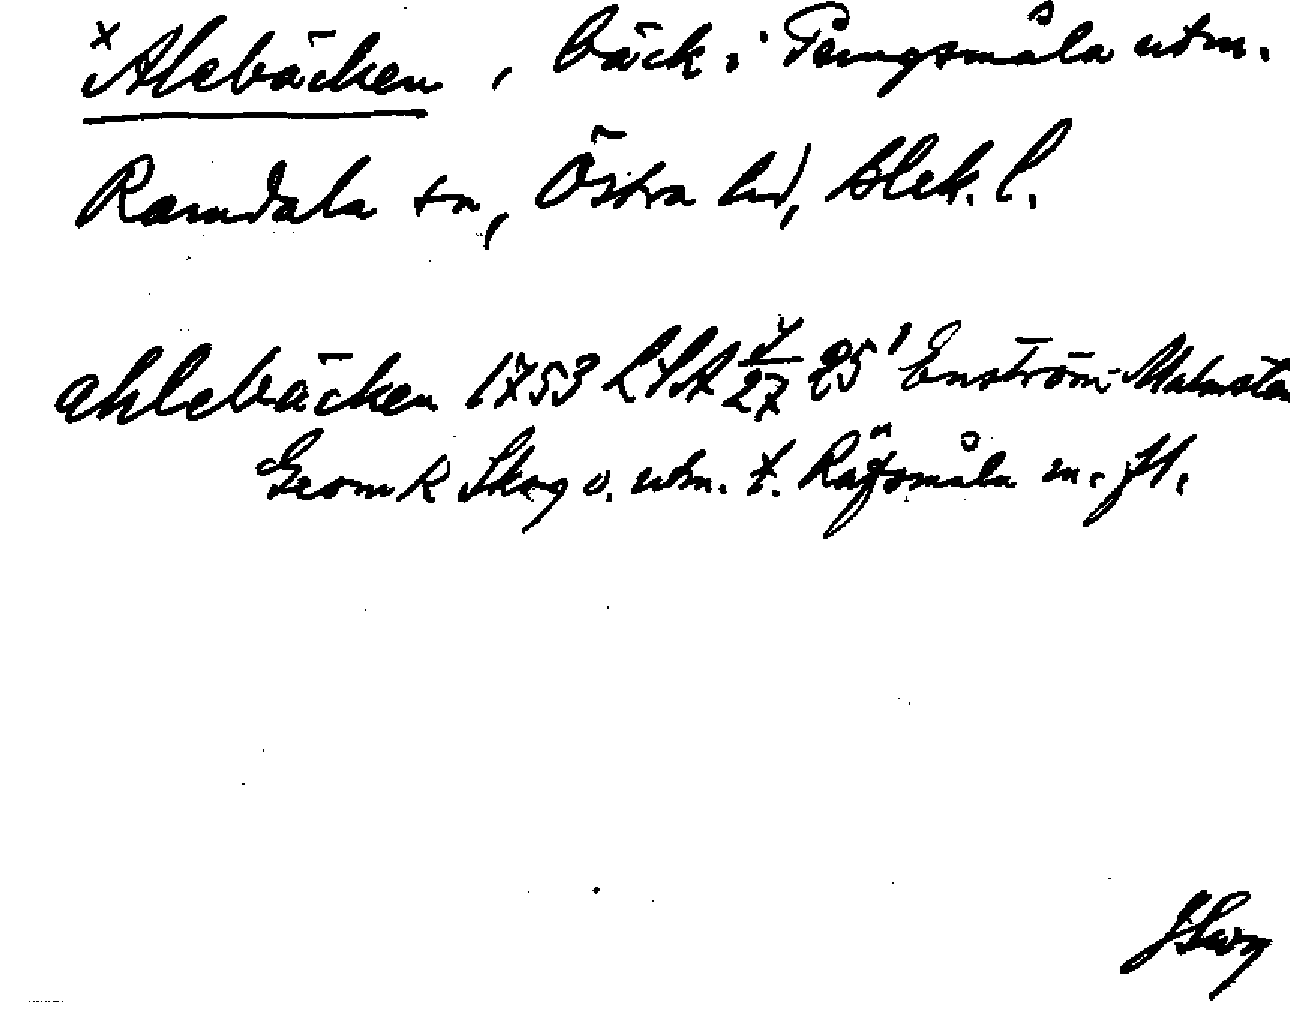 x Alebäcken, bäck i Pengsmåla utm.
Ramdala sn, Östra hd, Blek. l.
ahlebäcken 1753 LSA 27 25' Enström-Malmsten
Geom k Skog o. utm. t. Räfsmåla m. fl.